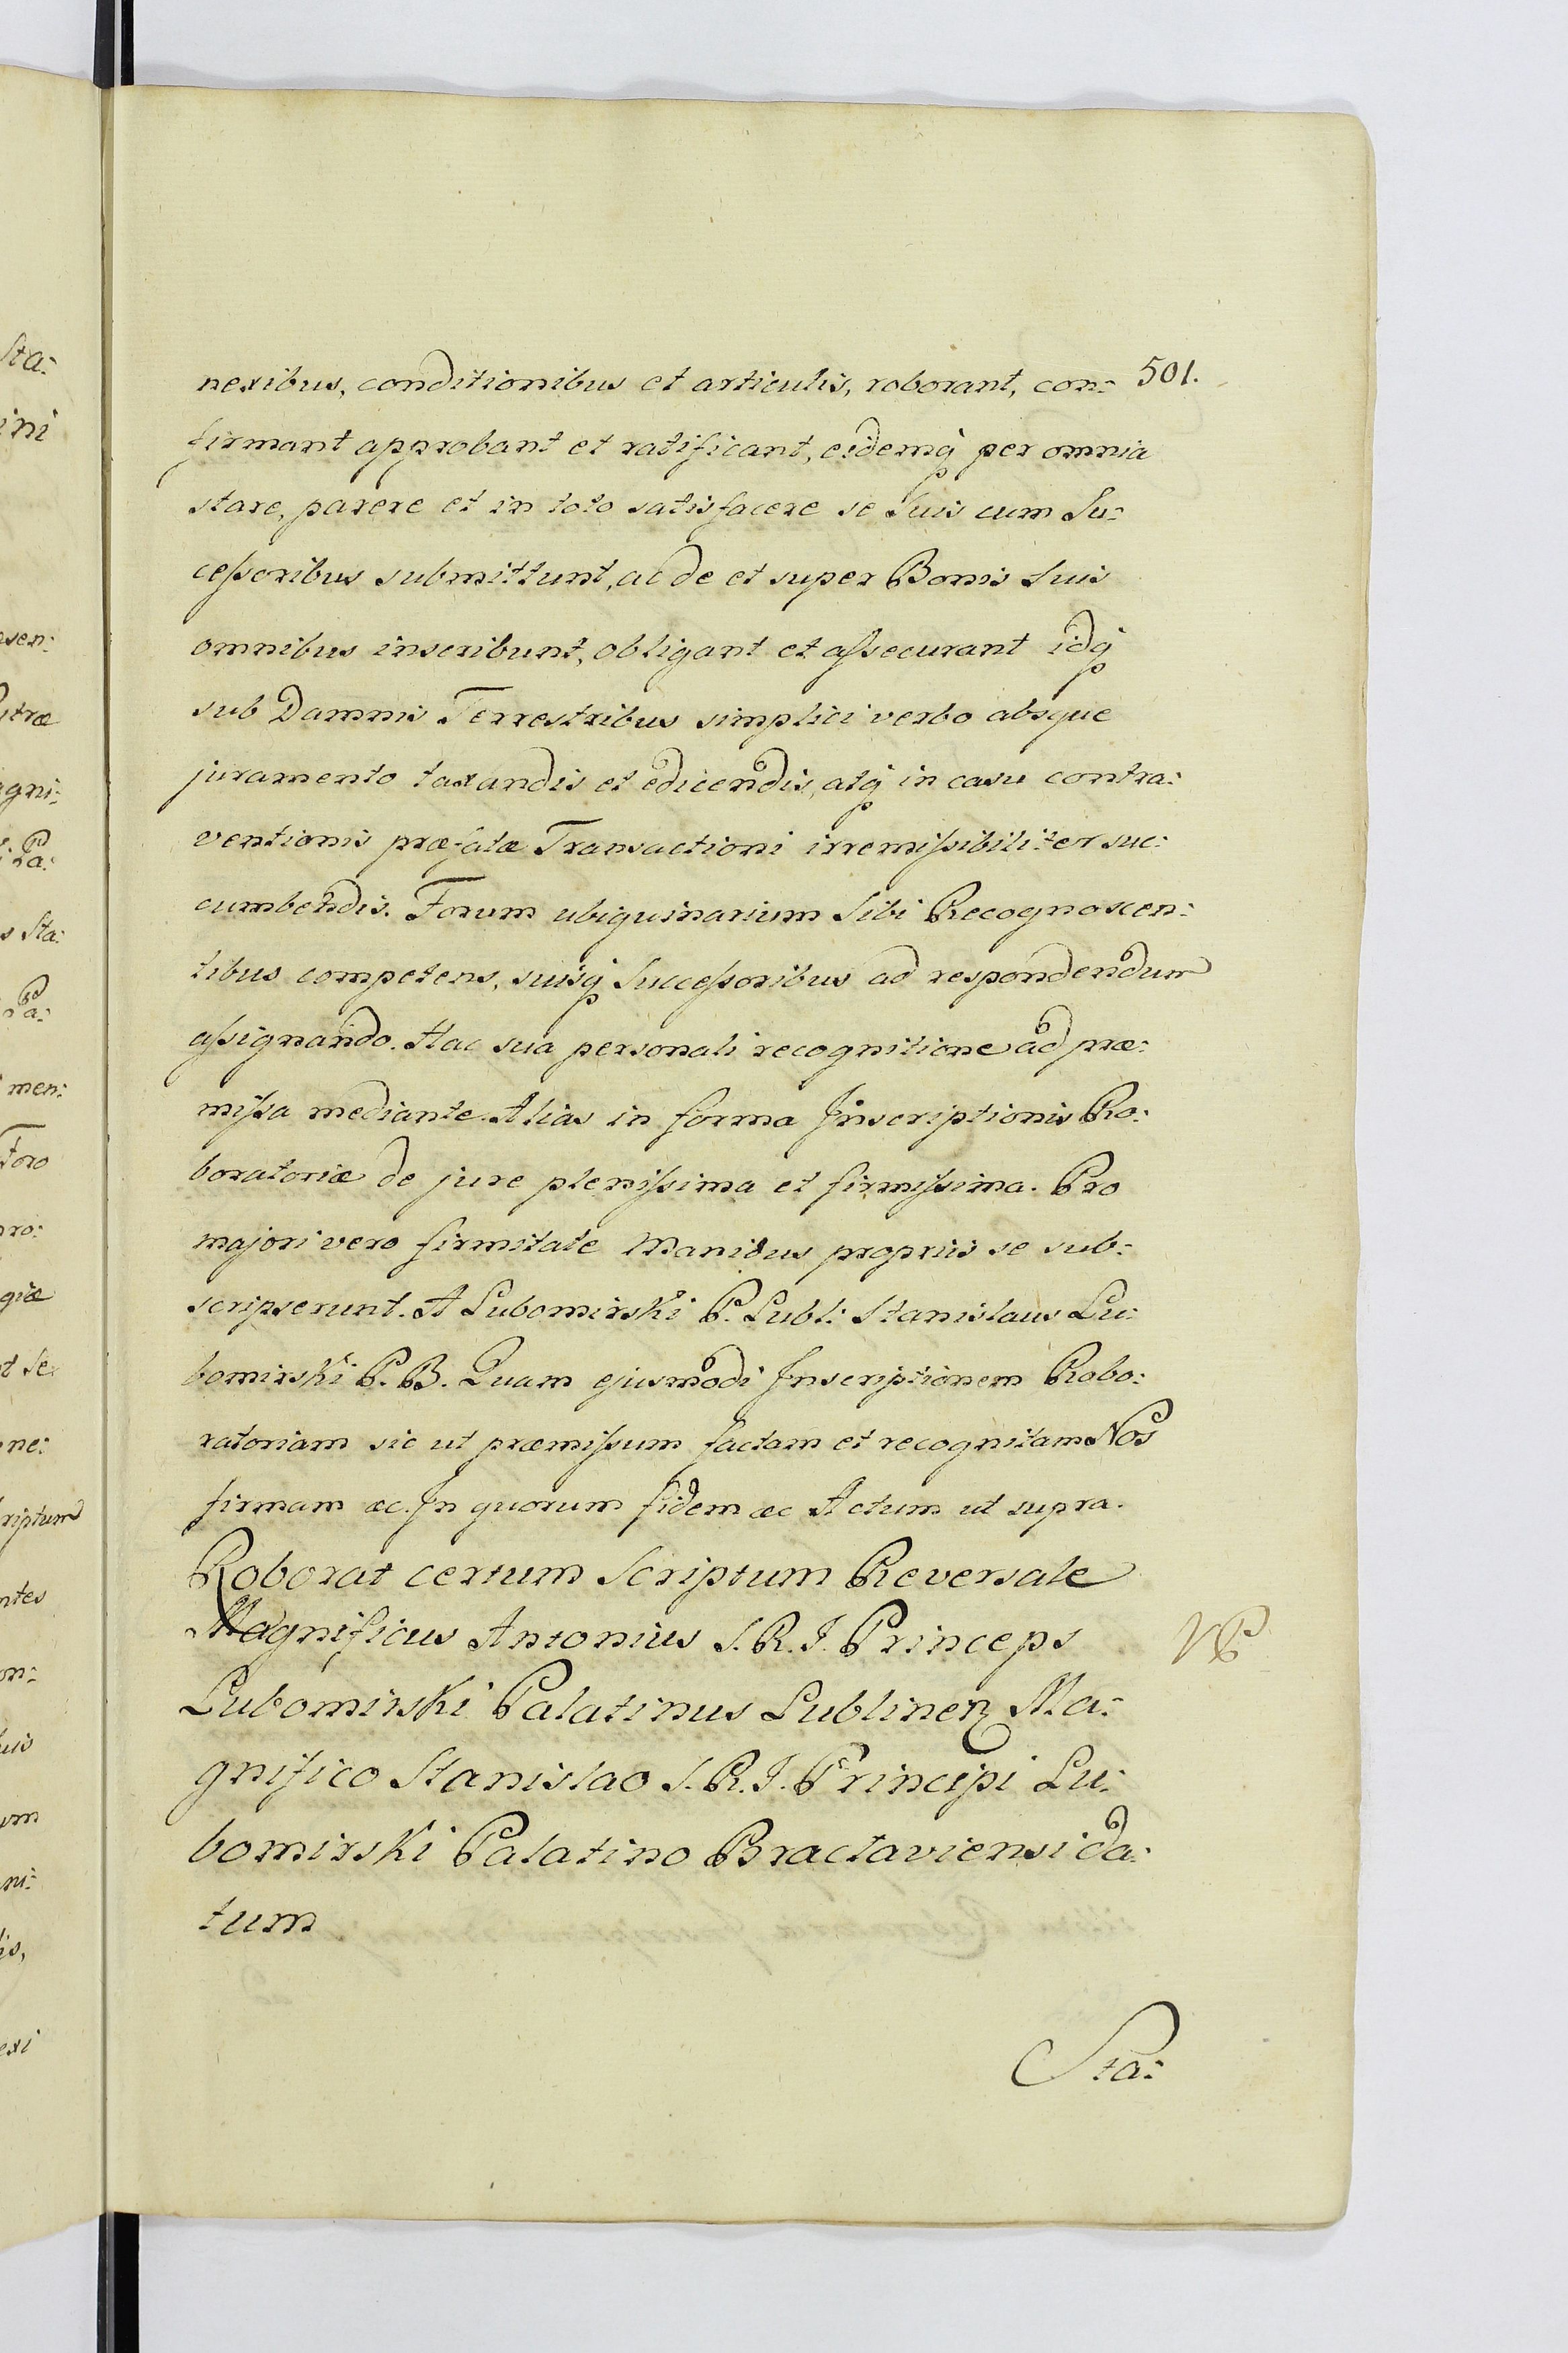 501.
nexibus, conditionibus et articulis, roborant, con:
firmant approbant et ratificant, eidemq́ per omnia
stare, parere et in toto satisfacere se Suis cum Su:
ceſsoribus submittunt, ac de et super Bonis Suis
omnibus inscribunt, obligant et aſsecurant idq́
sub Damnis Terrestribus simplici verbo absque
juramento taxandis et edicendis, atq́ in casu contra:
ventionis præfatæ Transactioni irremiſsibiliter suc:
cumbendis. Forum ubiquinarium Sibi Recognoscen:
tibus competens, suisq́ Succeſsoribus ad respondendum
aſsignando. Hac sua personali recognitione ad præ:
miſsa mediante. Alias in forma Inscriptionis Ro:
boratoriæ de jure pleniſsima et firmiſsima. Pro
majori vero firmitate Manibus propriis se sub:
scripserunt. A Lubomirski P. Lubl: Stanislaus Lu:
bomirski P. B. Quam ejusmodi Inscriptionem Robo:
ratoriam sic ut præmiſsum factam et recognitam Nos
firmam æc. In quorum fidem æc Actum ut supra.
Roborat certum Scriptum Reversale
Magnificus Antonius S. R. I. Princeps
Lubomirski Palatinus Lublineȝ Ma:
gnifico Stanislao S. R. I. Principi Lu:
bomirski Palatino Bractaviensi da:
tum
Sta: